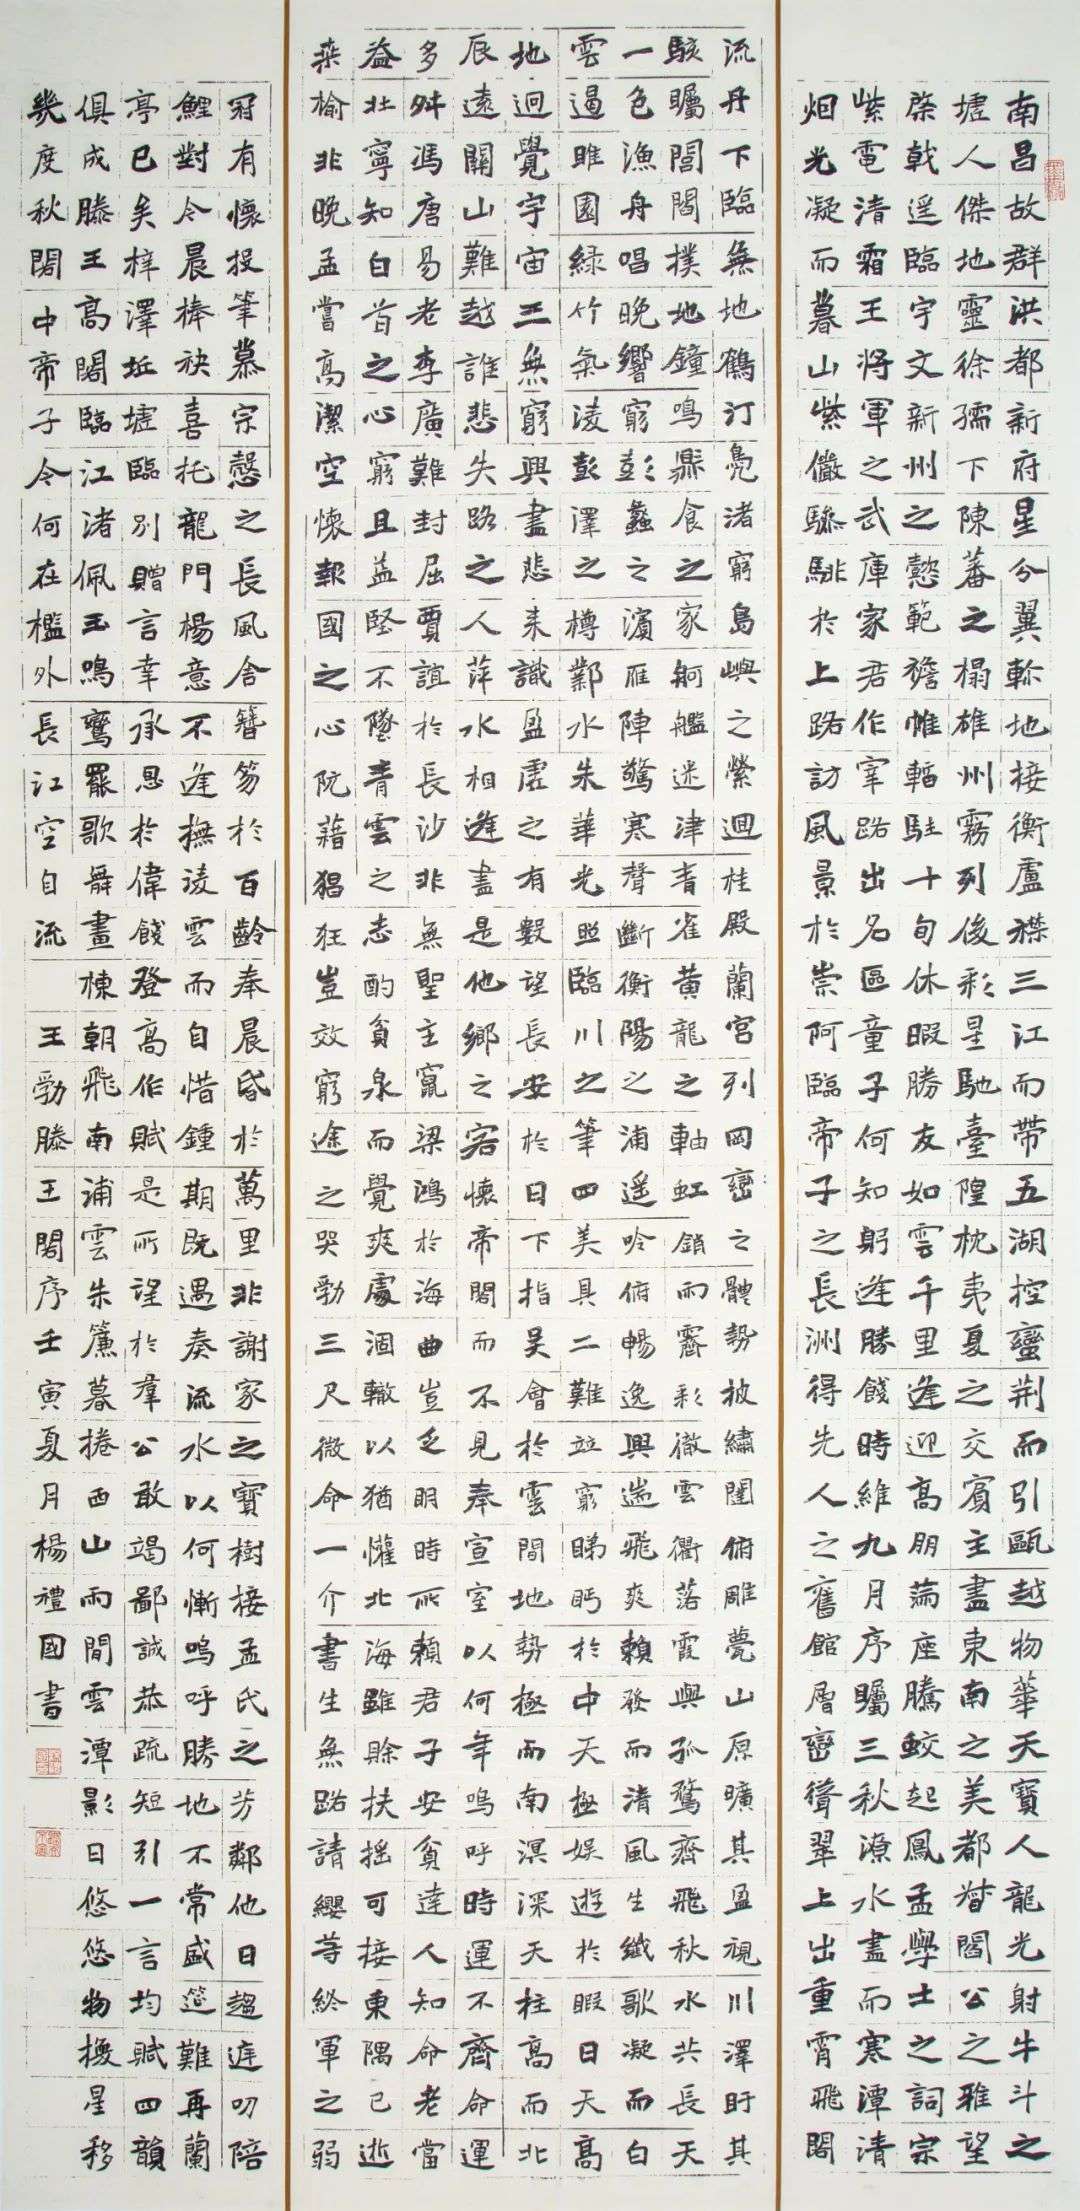 南昌故群洪都新府星分翼軫地接衡廬襟三江而帶五湖控蠻荆而引甌越物華天寶人龍光射牛斗之
墟人傑地靈徐孺下陳蕃之榻雄州霧列俊彩星馳臺隍枕夷夏之交賓主盡東南之美都督閻公之雅望
棨戟遥臨宇文新州之懿範襜帷暫駐十旬休暇勝友如雲千里逢迎高朋滿座騰蛟起鳳孟學士之詞宗
紫電清霜王將軍之武庫家君作宰路出名區童子何知躬逢勝餞時維九月序屬三秋潦水盡而寒潭清
烟光凝而暮山紫儼驂騑於上路訪風景於崇阿臨帝子之長洲得先人之舊館層巒聳翠上出重霄飛閣
流丹下臨無地鶴汀鳧渚窮島嶼之縈迴桂殿蘭宫列岡巒之體勢披繡闥俯雕甍山原曠其盈視川澤盱其
駭矚閭閻撲地鐘鳴鼎食之家舸艦迷津青雀黄龍之軸虹銷雨霽彩徹雲衢落霞與孤鶩齊飛秋水共長天
一色漁舟唱晚響窮彭蠡之濱雁陣驚寒聲斷衡陽之浦遥吟俯暢逸興遄飛爽籟發而清風生纖歌凝而白
雲遏雎園緑竹氣凌彭澤之樽鄴水朱華光照臨川之筆四美具二難並窮睇眄於中天極娱遊於暇日天高
地迥覺宇宙之無窮興盡悲来識盈虚之有數望長安於日下指吴會於雲間地勢極而南溟深天柱高而北
辰遠關山難越誰悲失路之人萍水相逢盡是他鄉之客懷帝閽而不見奉宣室以何年嗚呼時運不齊命運
多舛馮唐易老李廣難封屈賈誼於長沙非無聖主竄梁鴻於海曲豈乏明時所賴君子安貧達人知命老當
益壯寧知白首之心窮且益堅不墜青雲之志酌貪泉而覺爽處涸轍以猶懽北海雖賒扶摇可接東隅已逝
桑榆非晚孟嘗高潔空懷報國之心阮藉猖狂豈效窮途之哭勃三尺微命一介書生無路請纓等終軍之弱
冠有懷投筆慕宗慤之長風舍簪笏於百齡奉晨昏於萬里非謝家之寶樹接孟氏之芳鄰他日趨庭叨陪
鯉對今晨捧袂喜托龍門楊意不逢撫凌雲而自惜鍾期既遇奏流水以何慚嗚呼勝地不常盛筵難再蘭
亭已矣梓澤坵墟臨别贈言幸承恩於偉餞登高作賦是所望於羣公敢竭鄙誠恭疏短引一言均賦四韻
俱成滕王高閣臨江渚佩玉鳴鸞罷歌舞畫棟朝飛南浦雲朱簾暮捲西山雨閒雲潭影日悠悠物换星移
幾度秋閣中帝子今何在檻外長江空自流 王勃滕王閣序壬寅夏月楊禮國書